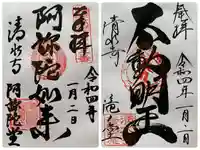 奉拝
令和四年
一月二日
阿弥陀如来
清水寺
阿弥陀堂
奉拝
令和四年
一月二日
不動明王
清水寺